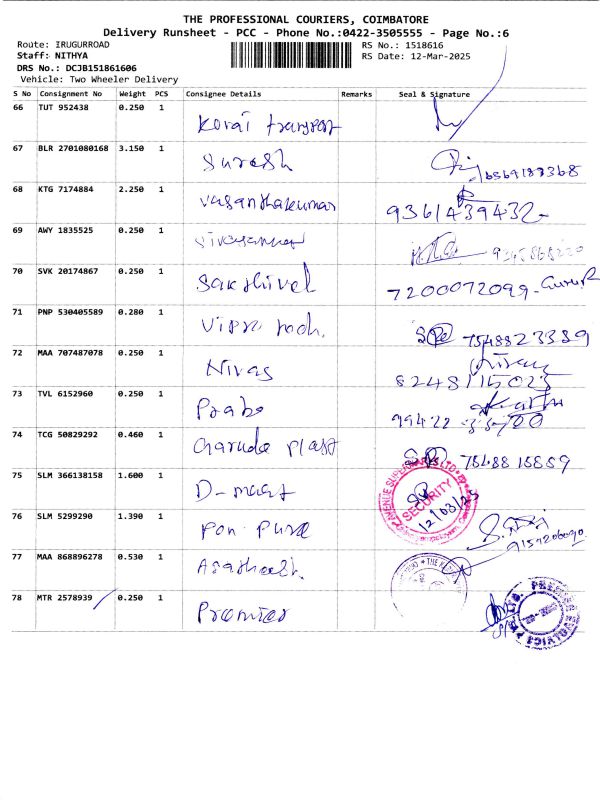 THE PROFESSIONAL COURIERS, COIMBATORE
Delivery Runsheet - PCC - Phone No.:0422-3505555 - Page No.:6
Route: IRUGURROAD
RS No.: 1518616
Staff: NITHYA
RS Date: 12-Mar-2025
DRS No.: DCJB151861606
Vehicle: Two Wheeler Delivery
S No Consignment No Weight PCS Consignee Details Remarks Seal & Signature
66 TUT 952438 0.250 1 Kovai transport
67 BLR 2701080168 3.150 1 Suresh
68 KTG 7174884 2.250 1 Vasanthakumar 9361439432
69 AWY 1835525 0.250 1
70 SVK 20174867 0.250 1 Sakthivel 7200072099
71 PNP 530405589 0.280 1 Vipra tech. 7548823389
72 MAA 707487078 0.250 1 Nivas 8248115023
73 TVL 6152960 0.250 1 Prabo
74 TCG 50829292 0.460 1 Garuda plast 7548815859
75 SLM 366138158 1.600 1 D-mart SECURITY 12/03/25
76 SLM 5299290 1.390 1 Pon Pure
77 MAA 868896278 0.530 1
78 MTR 2578939 0.250 1 Premier